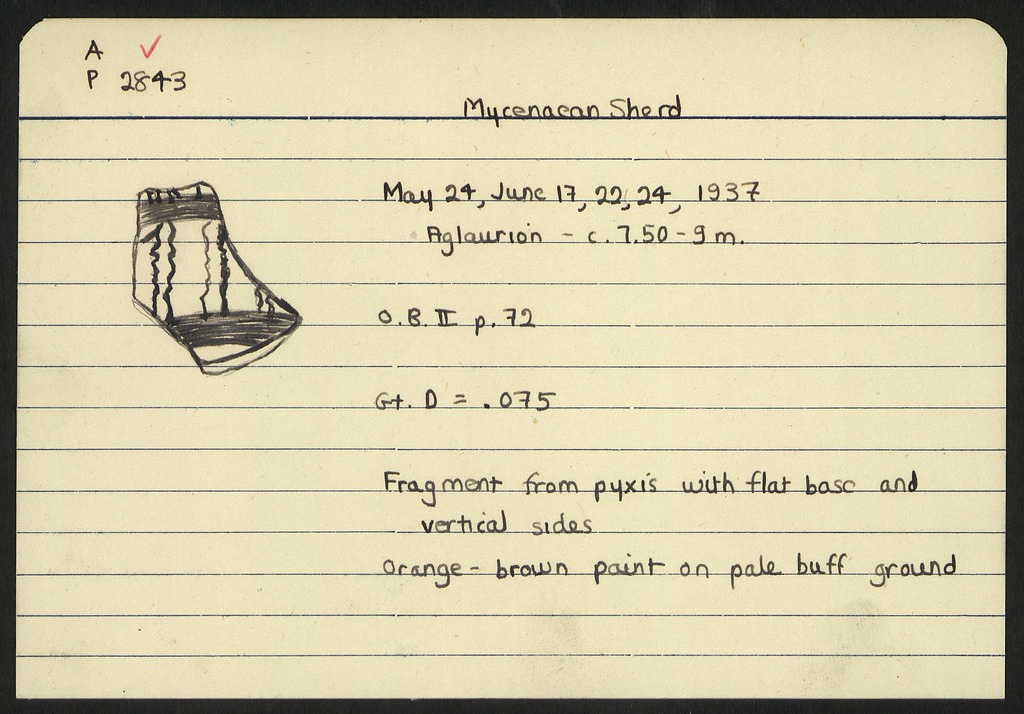 A ✓
P 2843
Mycenaean Sherd
May 24, June 17, 22, 24, 1937
Aglaurion - c. 7.50 - 9 m.
O.B. II p. 72
Gt. D = .075
Fragment from pyxis with flat base and
vertical sides
Orange - brown paint on pale buff ground